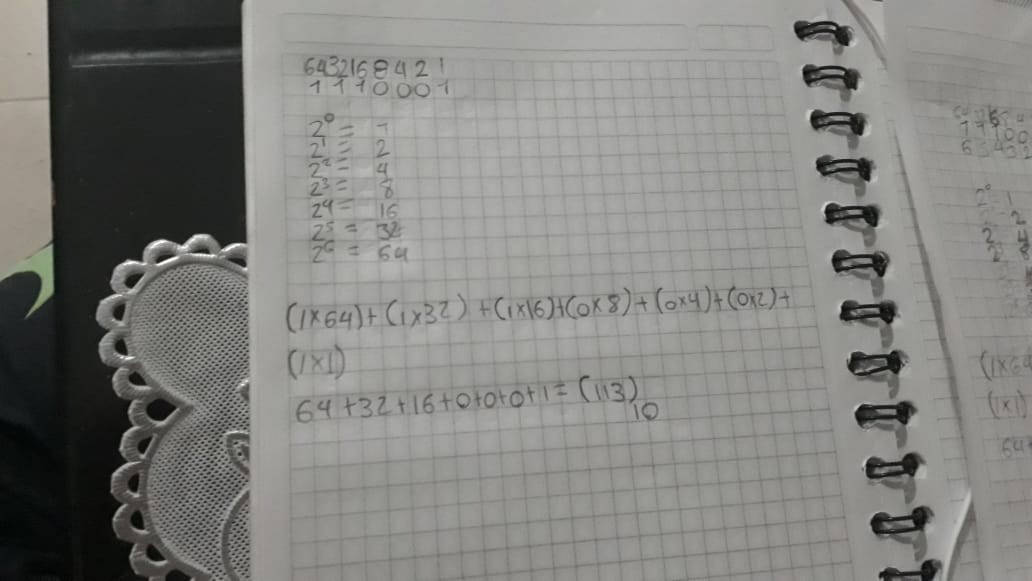 64 32 16 8 4 2 1
1 1 1 0 0 0 1
2⁰ = 1
2¹ = 2
2² = 4
2³ = 8
2⁴ = 16
2⁵ = 32
2⁶ = 64
(1×64)+(1×32)+(1×16)+(0×8)+(0×4)+(0×2)+
(1×1)
64+32+16+0+0+0+1=(113)₁₀
2⁰ 1
2
2 4
2 8
(1×64
(1×1)
64+